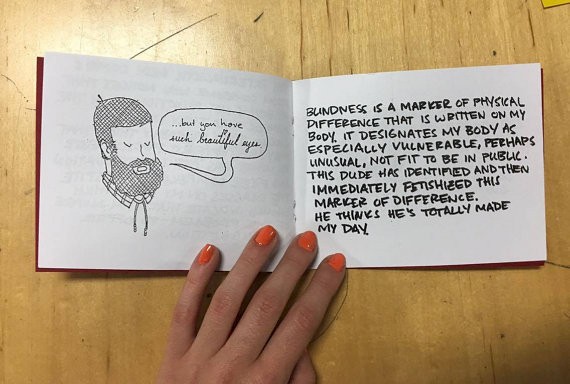 ...but you have
such beautiful eyes
BLINDNESS IS A MARKER OF PHYSICAL
DIFFERENCE THAT IS WRITTEN ON MY
BODY. IT DESIGNATES MY BODY AS
ESPECIALLY VULNERABLE, PERHAPS
UNUSUAL, NOT FIT TO BE IN PUBLIC.
THIS DUDE HAS IDENTIFIED AND THEN
IMMEDIATELY FETISHIZED THIS
MARKER OF DIFFERENCE.
HE THINKS HE'S TOTALLY MADE
MY DAY.